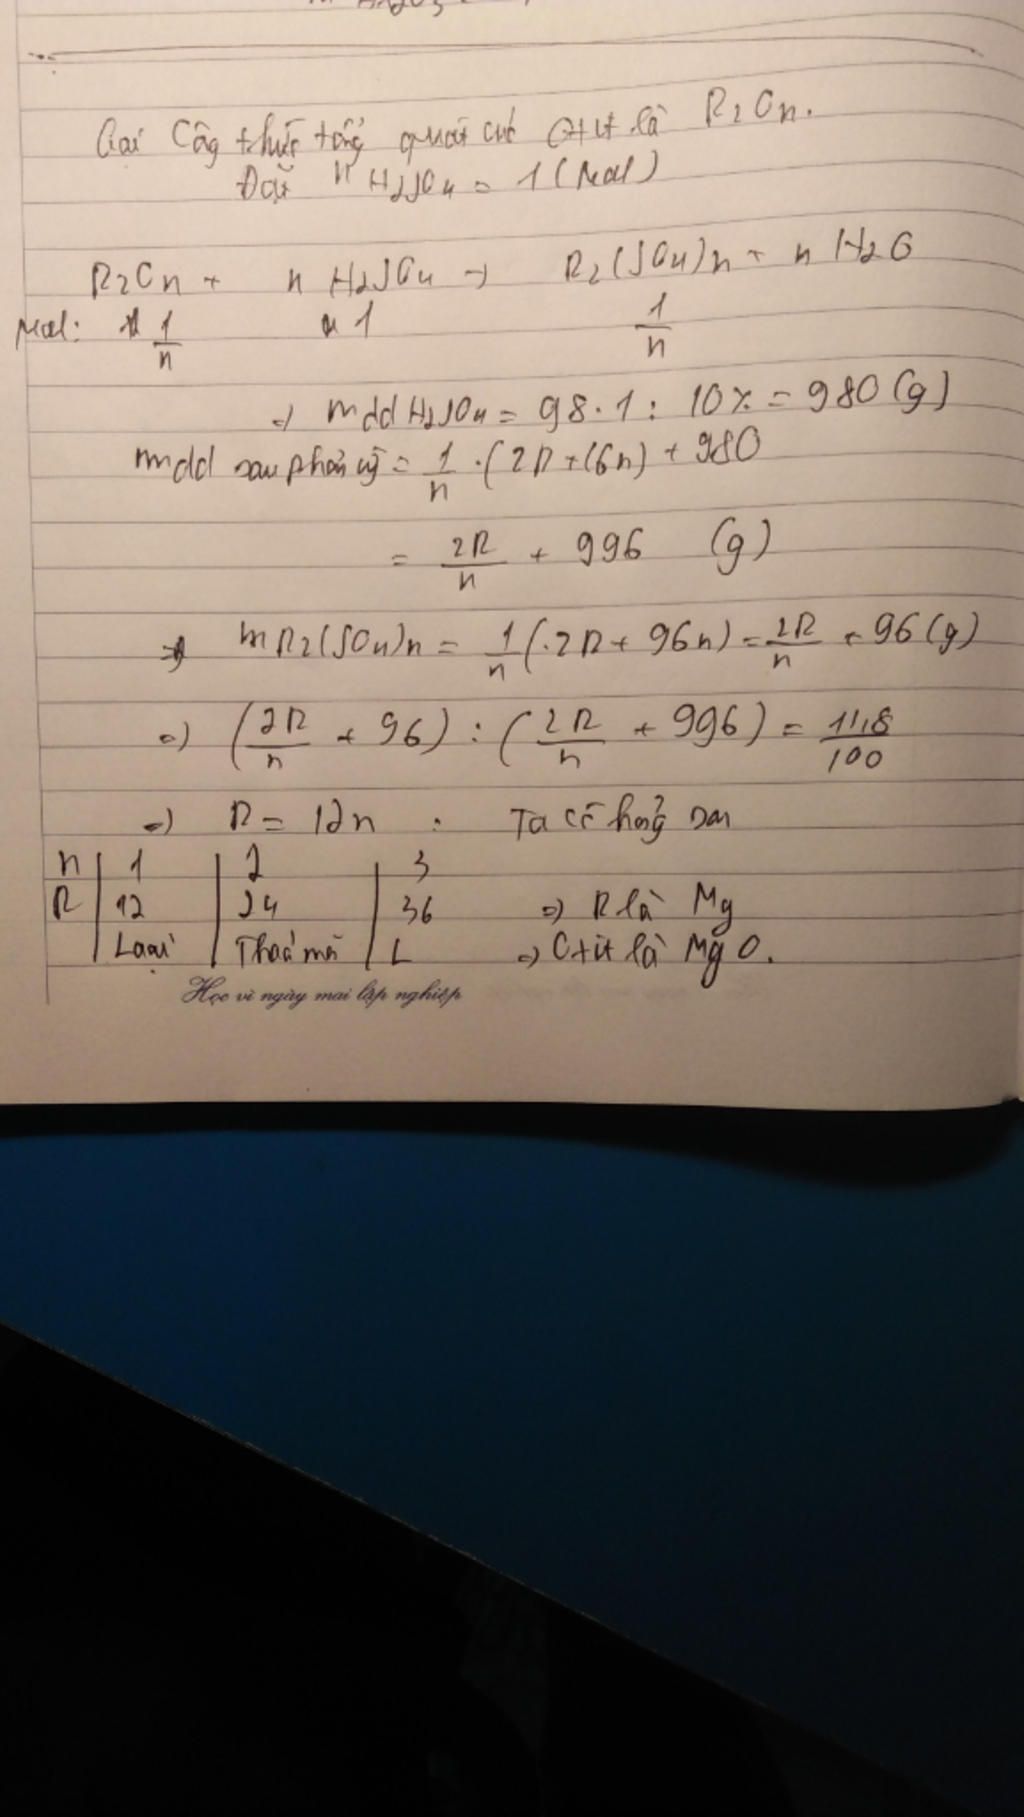 Gọi Công thức tổng quát của oxit là R₂On.
Đặt n H₂SO₄ = 1 (mol)
R₂On + n H₂SO₄ → R₂(SO₄)n + n H₂O
mol: 1/n 1 1/n
=> mdd H₂SO₄ = 98.1 : 10% = 980 (g)
mdd sau phản ứng = 1/n .(2R+16n) + 980
= 2R/n + 996 (g)
=> m R₂(SO₄)n = 1/n (.2R + 96n) = 2R/n + 96 (g)
=> (2R/n + 96) : (2R/n + 996) = 11,8/100
=> R = 12n . Ta có bảng sau
n | 1 | 2 | 3
R | 12 | 24 | 36 => R là Mg
| Loại | Thoả mãn | L => Oxit là MgO.
Học vì ngày mai lập nghiệp